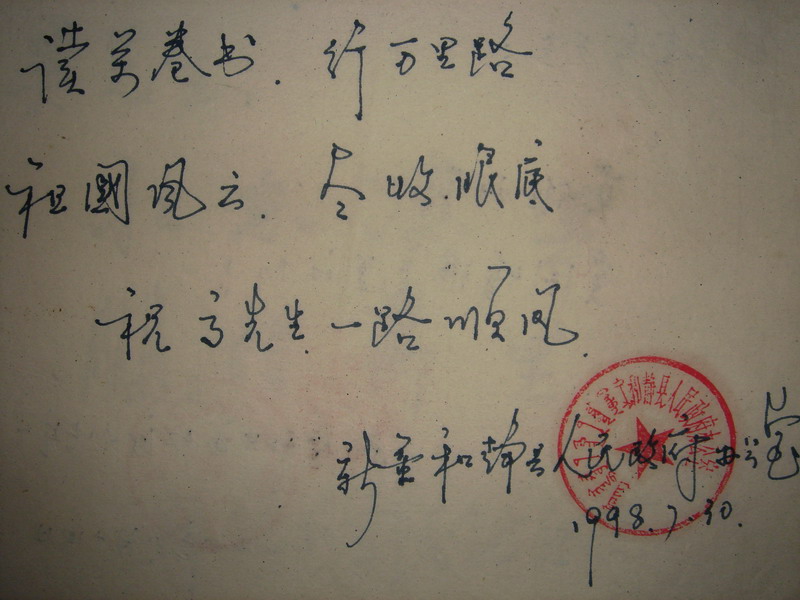 读万卷书.行万里路
祖國风云.尽收眼底
祝高先生.一路顺风.
新疆和静县人民政府办公室
1998.7.30.
和静县人民政府办公室